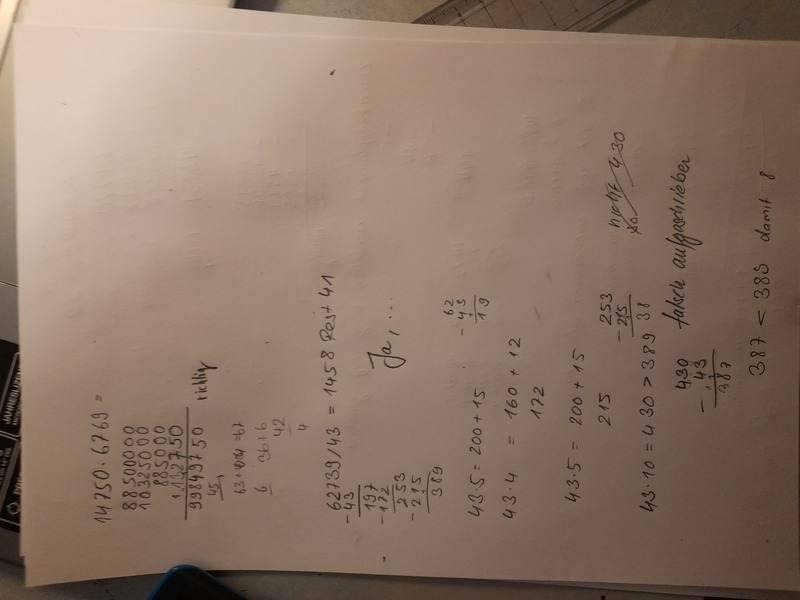 14750·6769=
88500000
10325000
885000
132750
99849750 richtig
45
63+4=67
6 36+6
42
4
62739/43 = 1458 Rest 41
-43
197
-172
253
-215
389
Ja, ...
43·5 = 200+15
- 62
43
19
43·4 = 160+12
172
43·5 = 200+15
215
253
-215
38
43·10 = 430 > 389
falsch aufgeschrieben
430
- 43
387
387 < 389 damit 8
JAHRESLIZEN